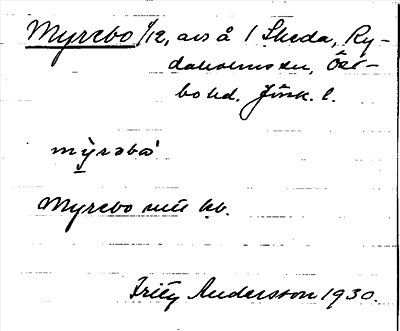 Myrebo 1/12, avs å 1 Skeda, Ry-
daholms sn, Öst-
bo hd. Jönk. l.
mỳrəbo
Myrebo kb.
Fritz Andersson 1930.